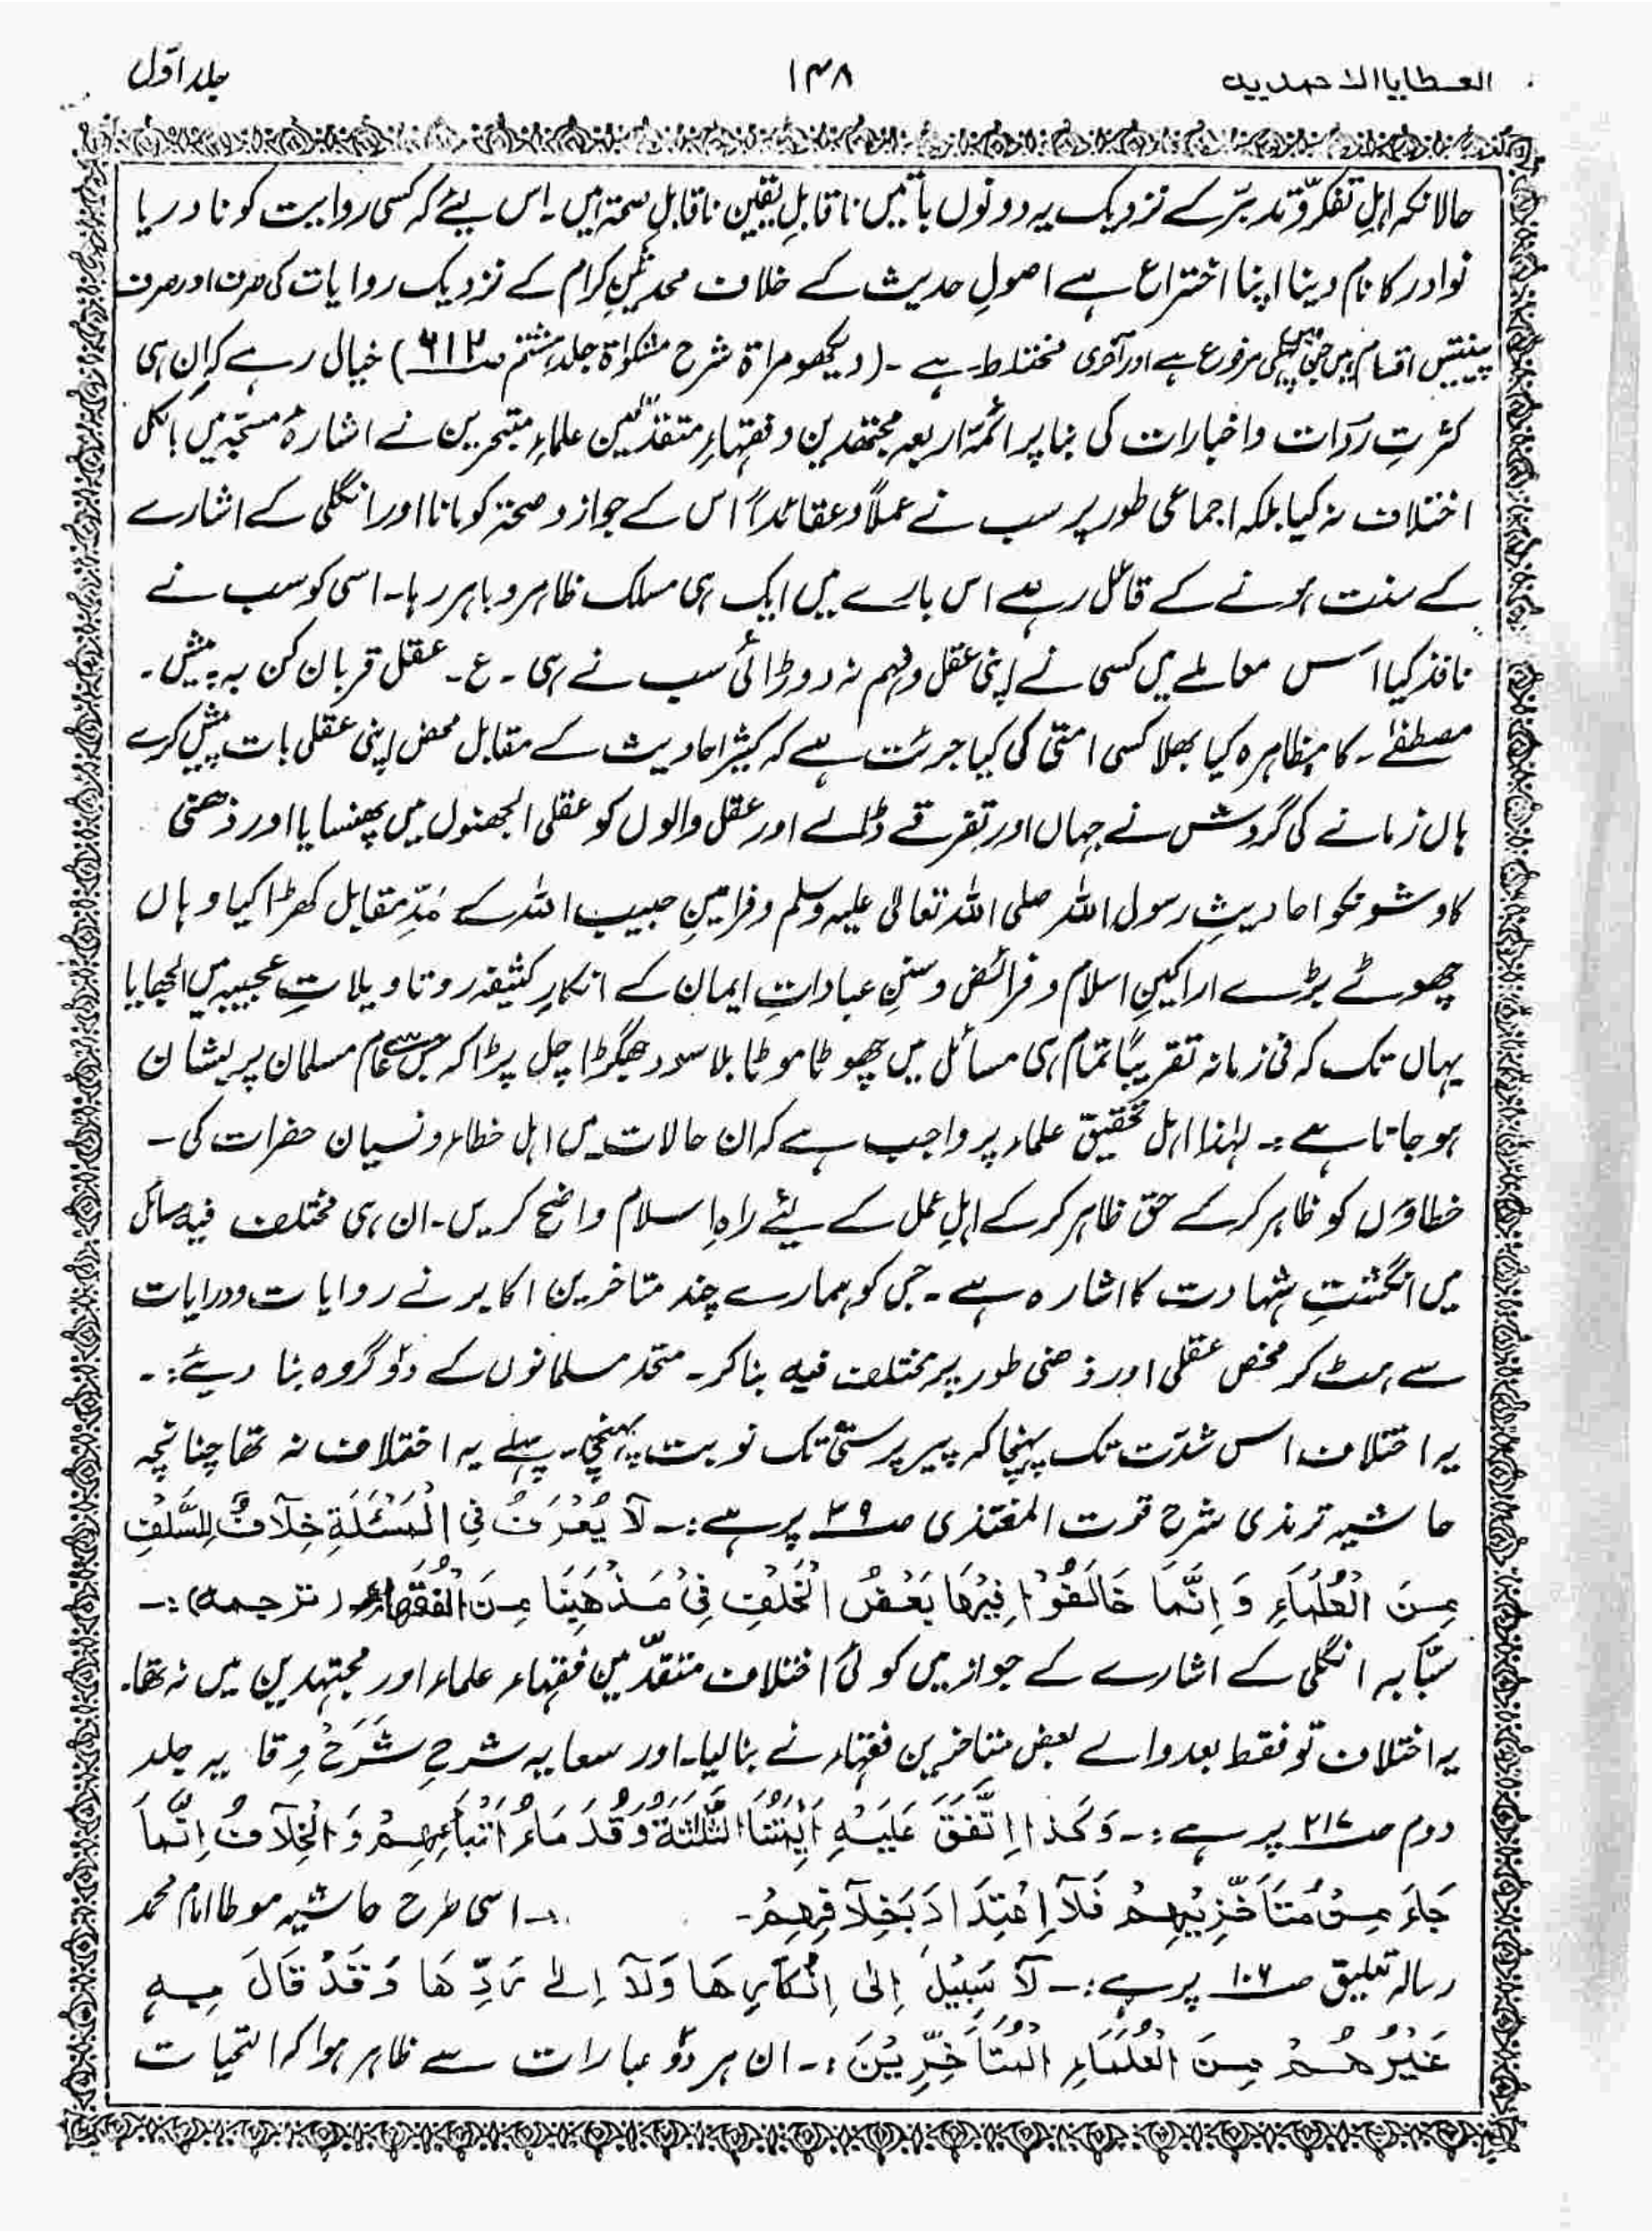 العطایا الاحمدیہ ۱۴۸ جلد اوّل
حالانکہ اہلِ تفکّر و تدبّر کے نزدیک یہ دونوں باتیں ناقابلِ یقین ناقابلِ صحتہ ہیں۔ اس لیے کہ کسی روایت کو نادر یا
نوادر کا نام دینا اپنا اختراع ہے اصولِ حدیث کے خلاف محدثینِ کرام کے نزدیک روایات کی صرف اور صرف
پینتیس اقسام ہیں جن میں پہلی مرفوع ہے اور آخری مختلط ہے ۔ (دیکھو مراۃ شرح مشکوٰۃ جلد ہشتم صـ ۶۱۲) خیال رہے کہ ان ہی
کثرتِ رَوَات و اخبارات کی بنا پر ائمہ اربعہ مجتھدین و فقہاءِ متقدّمین علماءِ متبحرین نے اشارۂ مسبّحہ میں بالکل
اختلاف نہ کیا بلکہ اجماعی طور پر سب نے عملاً و عقائداً اس کے جواز و صحتہ کو مانا اور انگلی کے اشارے
کے سنت ہونے کے قائل رہے اس بارے میں ایک ہی مسلک ظاہر و باہر رہا۔ اسی کو سب نے
نافذ کیا اس معاملے میں کسی نے اپنی عقل و فہم نہ دوڑائی سب نے ہی ۔ ع۔ عقل قربان کن بہ پیش ۔
مصطفیٰ ۔ کا مظاہرہ کیا بھلا کسی امتی کی کیا جرئت ہے کہ کثیر احادیث کے مقابل محض اپنی عقلی بات پیش کرے
ہاں زمانے کی گردش نے جہاں اور تفرقے ڈالے اور عقل والوں کو عقلی الجھنوں میں پھنسایا اور ذھنی
کاوشوں کو احادیثِ رسول اللہ صلی اللہ تعالیٰ علیہ وسلم و فرامینِ حبیب اللہ کے مَدِّ مقابل کھڑا کیا وہاں
چھوٹے بڑے اراکینِ اسلام و فرائض و سننِ عباداتِ ایمان کے انکارِ کثیفہ و تاویلاتِ عجیبہ میں الجھایا
یہاں تک کہ فی زمانہ تقریباً تمام ہی مسائل میں چھوٹا موٹا بلا سود جھگڑا چل پڑا کہ جس سے عام مسلمان پریشان
ہو جاتا ہے :۔ لہٰذا اہل تحقیق علماء پر واجب ہے کہ ان حالات میں اہل خطاء و نسیان حضرات کی ۔
خطاؤں کو ظاہر کر کے حق ظاہر کر کے اہلِ عمل کے لیئے راہِ اسلام واضح کریں۔ ان ہی مختلف فیہ مسائل
میں انگشتِ شہادت کا اشارہ ہے ۔ جس کو ہمارے چند متاخرین اکابر نے روایات و درایات
سے ہٹ کر محض عقلی اور ذھنی طور پر مختلف فیہ بنا کر ۔ متحد مسلمانوں کے دو گروہ بنا دیئے :۔
یہ اختلاف اس شدّت تک پہنچا کہ پیر پرستی تک نوبت پہنچی۔ پہلے یہ اختلاف نہ تھا چنانچہ
حاشیہ ترمذی شرح قوت المغتذی صـ ۳۹ پر ہے :۔ لَا یُعْرَفُ فِی الْمَسْئَلَةِ خِلَافٌ لِلسَّلَفِ
مِنَ الْعُلَمَاءِ وَ اِنَّمَا خَالَفُوْا فِیْهَا بَعْضُ الْخَلْفِ فِیْ مَذْهَبِنَا مِنَ الْفُقَهَاءِ (ترجمہ) :۔
سبّابہ انگلی کے اشارے کے جواز میں کوئی اختلاف متقدّمین فقہاء علماء اور مجتہدین میں نہ تھا۔
یہ اختلاف تو فقط بعد والے بعض متاخرین فقہاء نے بنا لیا۔ اور سعایہ شرحِ شَرَحْ وِقایہ جلد
دوم صـ ۲۱۷ پر ہے :۔ وَکَذَا اِتَّفَقَ عَلَیْهِ اَئِمَّتُنَا الثَّلٰثَةُ وَقُدَمَاءُ اَتْبَاعِهِمْ وَ الْخِلَافُ اِنَّمَا
جَاءَ مِنْ مُتَاَخِّرِیْهِمْ فَلَا اِعْتِدَادَ بِخِلَافِهِمْ۔ :۔ اسی طرح حاشیہ موطا امام محمد
رسالہ تعلیق صـ ۱۰۶ پر ہے :۔ لَا سَبِیْلَ اِلٰی اِنْکَارِهَا وَلَا اِلٰی رَدِّهَا وَقَدْ قَالَ بِهٖ
غَیْرُهُمْ مِنَ الْعُلَمَاءِ الْمُتَاَخِّرِیْنَ :۔ ان ہر دو عبارات سے ظاہر ہوا کہ التحیات